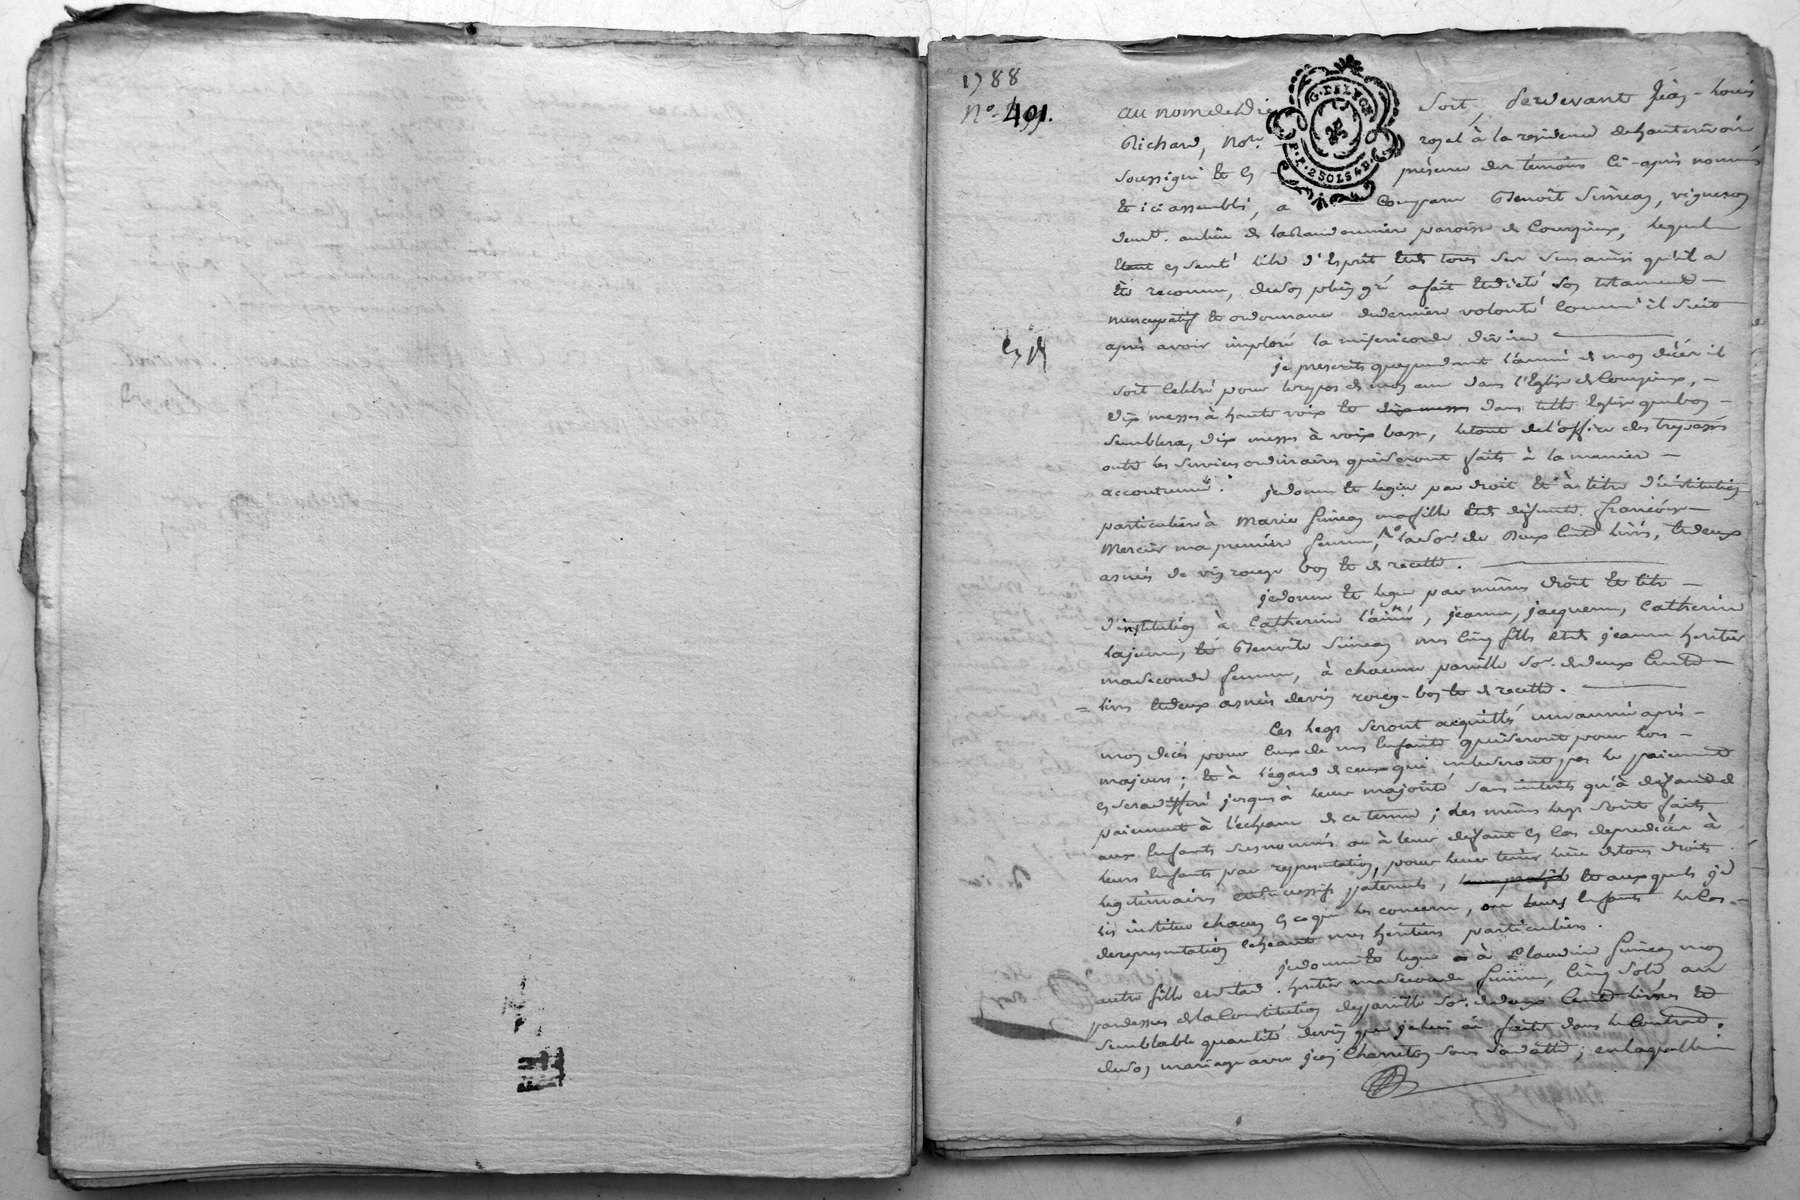 1788
N.° 491.
au nom de Dieu soit, pardevant Jean-Louis
Richard, No.re royal à la residence de hauterivoire
soussigné et en présence des témoins ci-après nommés
G. DE LYON
P.P. 2 SOLS 4 D.
et ici assemblés, a comparu Benoît Simean, vigneron
demt. au lieu de paroisse de Courzieux, lequel
étant en santé libre d'esprit et de tous ses sens ainsi qu'il a
été reconnu, de son plein gré a fait et dicté son testament
nuncupatif et ordonnance de derniere volonté comme il suit
après avoir imploré la misericorde divine
je prescrits que pendant l'année de mon décès il
soit celebré pour le repos de mon ame dans l'Eglise de Courzieux,
dix messes à haute voix et dix messes dans telle Eglise que bon
semblera, dix messes à voix basse, le tout de l'office des trepassés
outre les services ordinaires qui seront faits à la maniere
accoutumée. je donne et legue par droit et à titre d'institution
particuliere à Marie Simean ma fille et de defunte françoise
Mercier ma premiere femme, la so.e de Deux cents livres, et deux
asnées de vin rouge bon et de recette.
je donne et legue par mêmes droit et titre
d'institution à Catherine l'ainée, jeanne, jacqueme, Catherine
la jeune, et Benoîte Simean mes cinq filles et de jeanne heritier
ma seconde femme, à chacune pareille so.e de deux cents
livres et deux asnées de vin rouge bon et de recette.
Ces legs seront acquittés un an après
mon décès pour ceux de mes enfants qui seront pour lors
majeurs; et à l'égard de ceux qui ne le seront pas le paiement
en sera differé jusqu'à leur majorité sans interets qu'à defaut de
paiement à l'écheance de ce terme; les mêmes legs sont faits
aux enfants susnommés ou à leur defaut en cas de predécès à
leurs enfants par representation, pour leur tenir lieu de tous droits
legitimaires et successifs paternels, et auxquels je
les institue chacun en ce qui les concerne, ou leurs enfants le cas
de representation echeant mes heritiers particuliers.
je donne et legue à Claudine Simean mon
autre fille et de lad. heritier ma seconde femme, cinq sols au
pardessus de la constitution de pareille so.e de deux cents livres et
semblable quantité de vin que je lui ai faite dans le contrat
de son mariage avec jean Charreton sous sa datte; en laquelle